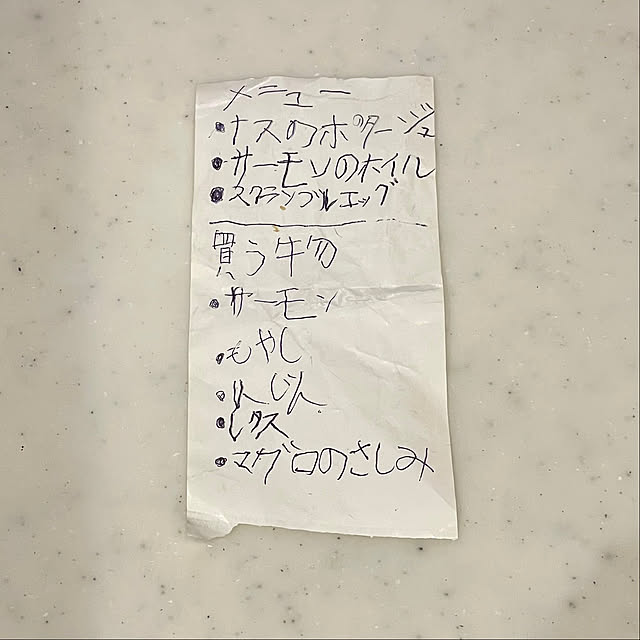 メニュー
・ナスのポタージュ
・サーモンのホイル
・スクランブルエッグ
買う物
・サーモン
・もやし
・にんじん
・レタス
・マグロのさしみ